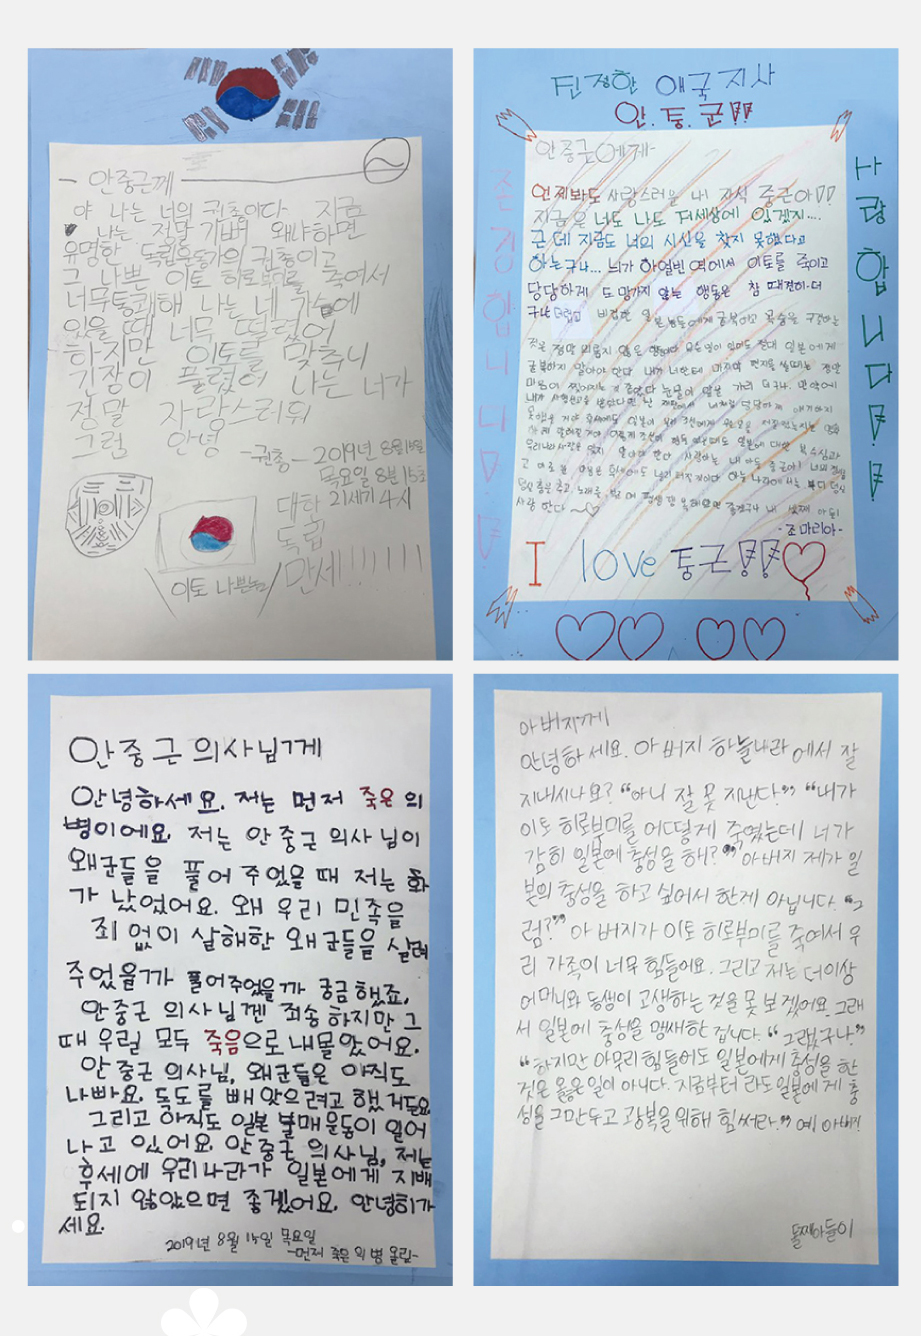 안중근께
야 나는 너의 권총이다. 지금
나는 정말 기뻐 왜냐하면
유명한 독립운동가의 권총이고
그 나쁜 이토 히로부미를 죽여서
너무통쾌해 나는 네 가슴에
있을 때 너무 떨렸어
하지만 이토를 맞추니
긴장이 풀렸어 나는 너가
정말 자랑스러워
그럼 안녕 -권총-
2019년 8월 15일
목요일 8분 15초
21세기 4시
대한
독립
만세!!!!!!!
이토 나쁜놈
진정한 애국지사
안.중.근!!
존경합니다!!
사랑합니다!!
안중근에게
언제봐도 사랑스러운 내 자식 중근아!!
지금은 너도 나도 저세상에 있겠지....
근데 지금도 너의 시신을 찾지 못했다고
하는구나... 네가 하얼빈역에서 이토를 죽이고
당당하게 도망가지 않는 행동은 참 대견하더
구나 더럽고 비겁한 일본놈들에게 굴복하고 목숨을 구걸하는
-조마리아-
I love 중근!!!
안중근의사님께
안녕하세요. 저는 먼저 죽은 의
병이에요. 저는 안중근 의사님이
왜군들을 풀어주었을 때 저는 화
가 났었어요. 왜 우리 민족을
죄 없이 살해한 왜군들을 살려
주었을까 풀어주었을까 궁금했죠.
안중근 의사님껜 죄송하지만 그
때 우릴 모두 죽음으로 내몰았어요.
안중근 의사님, 왜군들은 아직도
나빠요. 독도를 빼앗으려고 했거든요.
그리고 아직도 일본 불매운동이 일어
나고 있어요. 안중근 의사님, 저는
후세에 우리나라가 일본에게 지배
되지 않았으면 좋겠어요. 안녕히가
세요.
2019년 8월 15일 목요일
-먼저 죽은 의병 올림-
아버지께
안녕하세요. 아버지 하늘나라에서 잘
지내시나요? "아니 잘 못 지낸다." "내가
이토 히로부미를 어떻게 죽였는데 너가
감히 일본에 충성을 해?" 아버지 제가 일
본의 충성을 하고 싶어서 한게 아닙니다. "그
럼?" 아버지가 이토 히로부미를 죽여서 우
리 가족이 너무 힘들어요. 그리고 저는 더이상
어머니와 동생이 고생하는 것을 못 보겠어요 그래
서 일본에 충성을 맹새한 겁니다. "그랬구나."
"하지만 아무리 힘들어도 일본에게 충성을 한
것은 옳은일이 아니다. 지금부터 라도 일본에게 충
성을 그만두고 광복을 위해 힘써라." 예 아버지!
둘째아들이